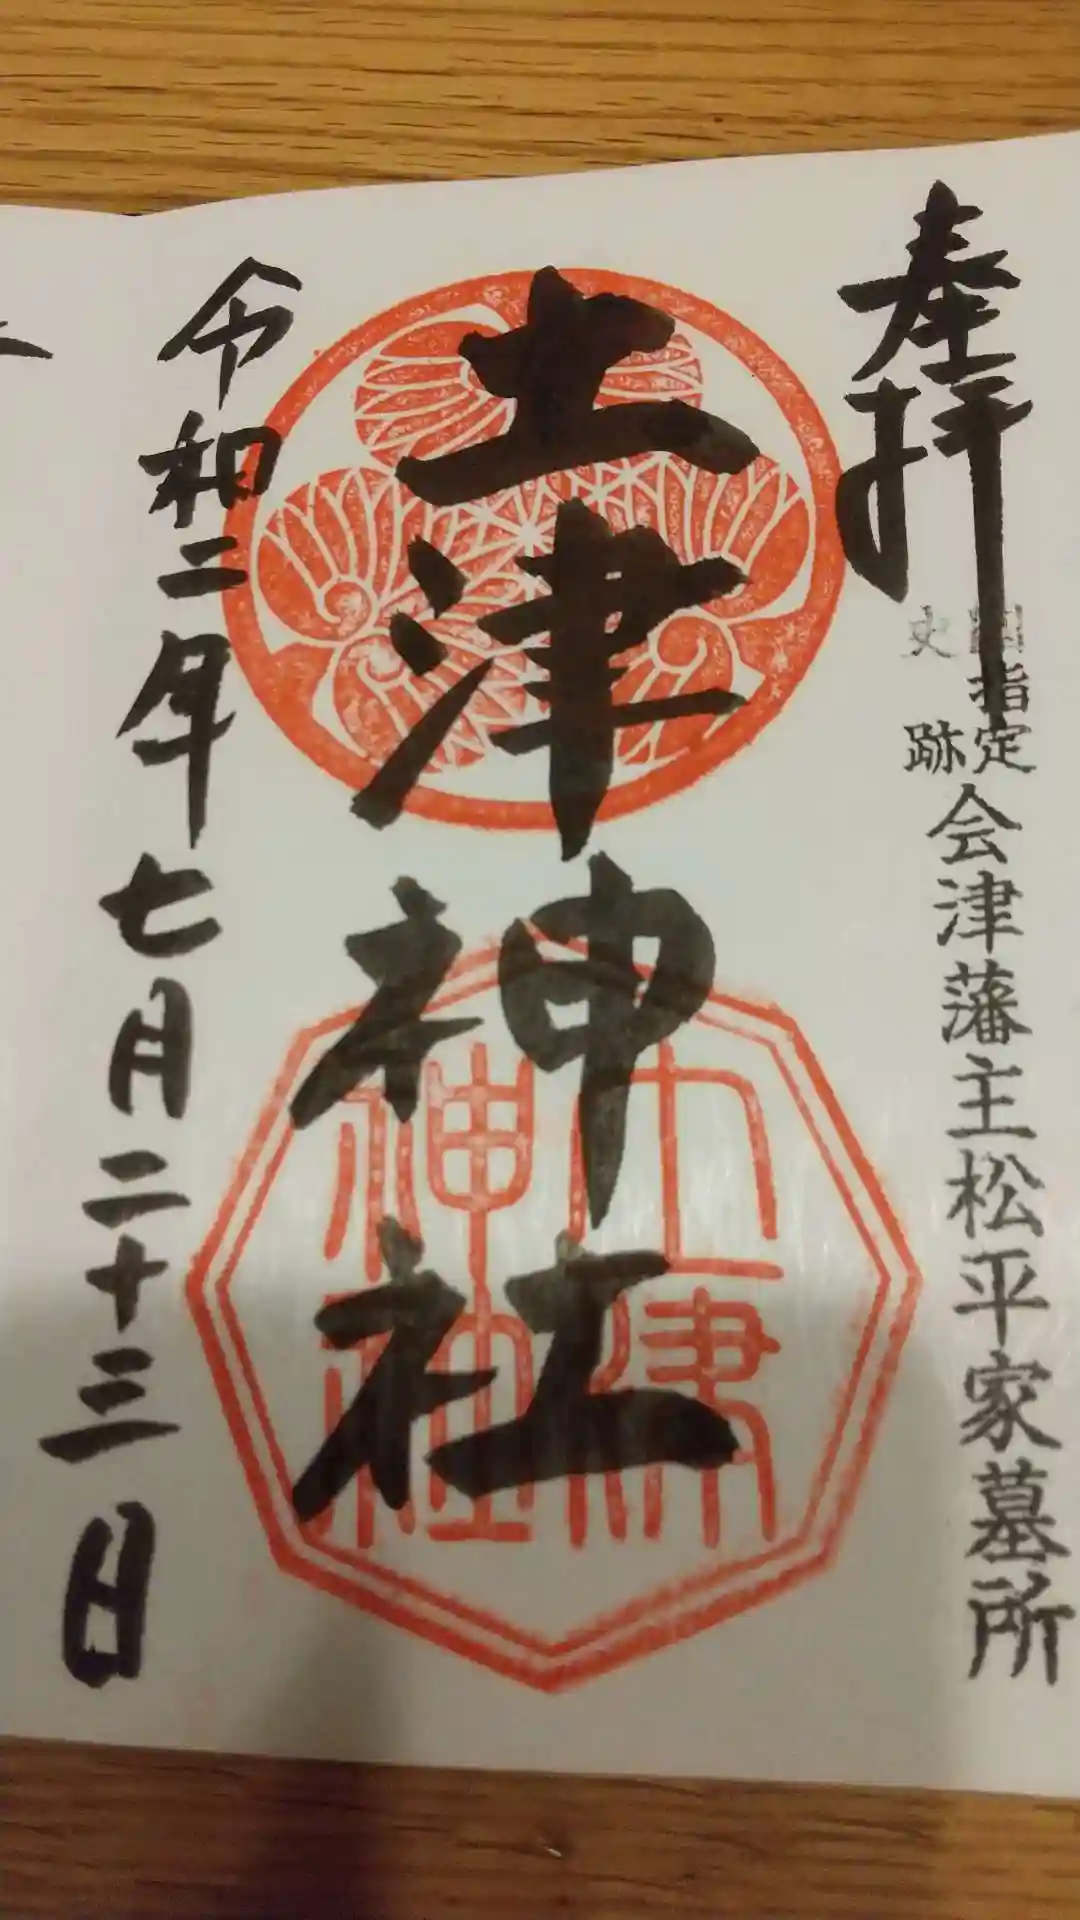 奉拝
国指定
史跡
会津藩主松平家墓所
土津神社
土津
神社
令和二年七月二十三日